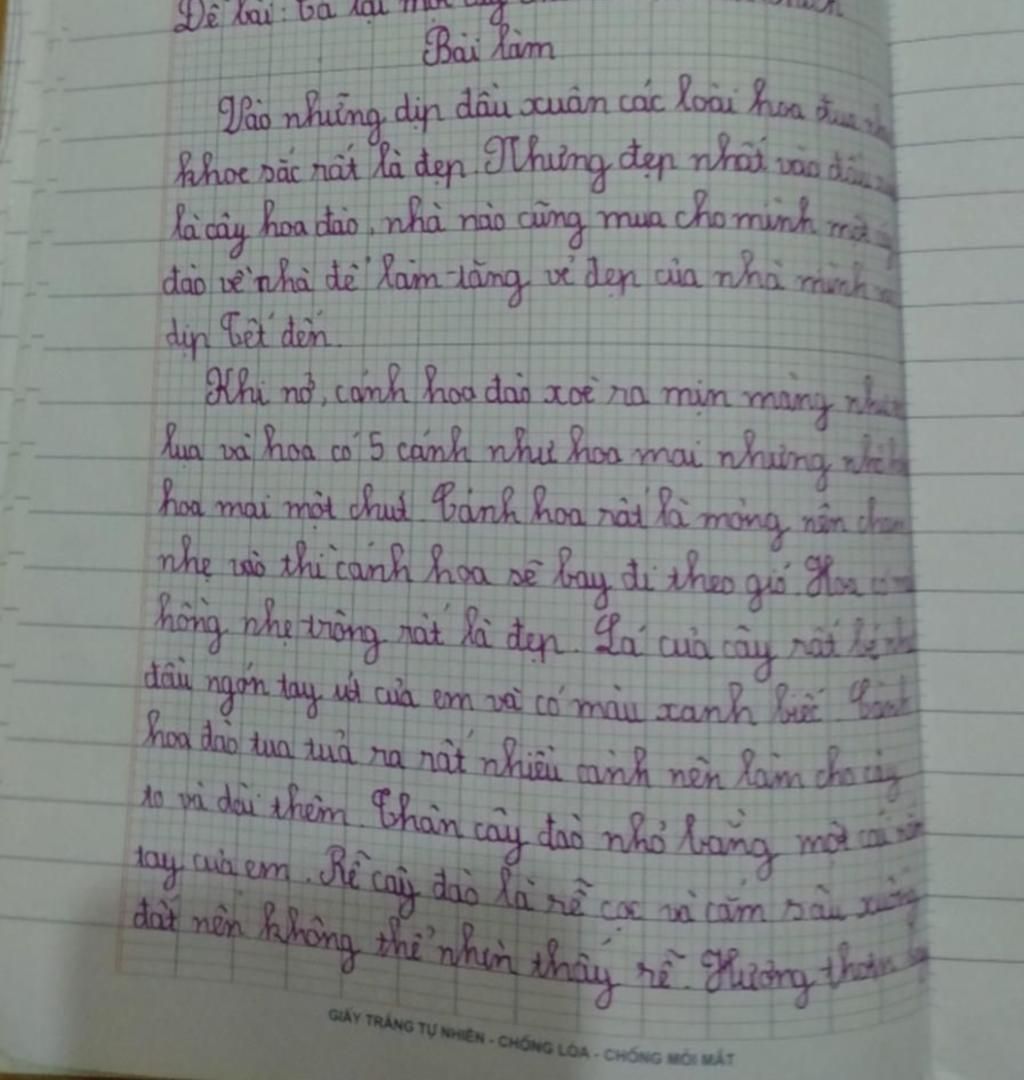 Đề bài: Tả lại một cây
Bài làm
Vào những dịp đầu xuân các loài hoa đua
khoe sắc rất là đẹp. Nhưng đẹp nhất vào đầu
là cây hoa đào, nhà nào cũng mua cho mình một
đào về nhà để làm tăng vẻ đẹp của nhà mình
dịp Tết đến.
Khi nở, cánh hoa đào xoè ra mịn màng như
lụa và hoa có 5 cánh như hoa mai nhưng
hoa mai một chút. Cánh hoa rất là mỏng nên chạm
nhẹ vào thì cánh hoa sẽ bay đi theo gió. Hoa
hồng nhẹ trông rất là đẹp. Lá của cây rất
đầu ngón tay út của em và có màu xanh biếc. Cành
hoa đào tua tuả ra rất nhiều cành nên làm cho cây
to và dài thêm. Thân cây đào nhỏ bằng một cái
tay của em. Rễ cây đào là rễ cọc và cắm sâu xuống
đất nên không thể nhìn thấy rễ. Hương thơm
GIẤY TRẮNG TỰ NHIÊN - CHỐNG LÓA - CHỐNG MỎI MẮT